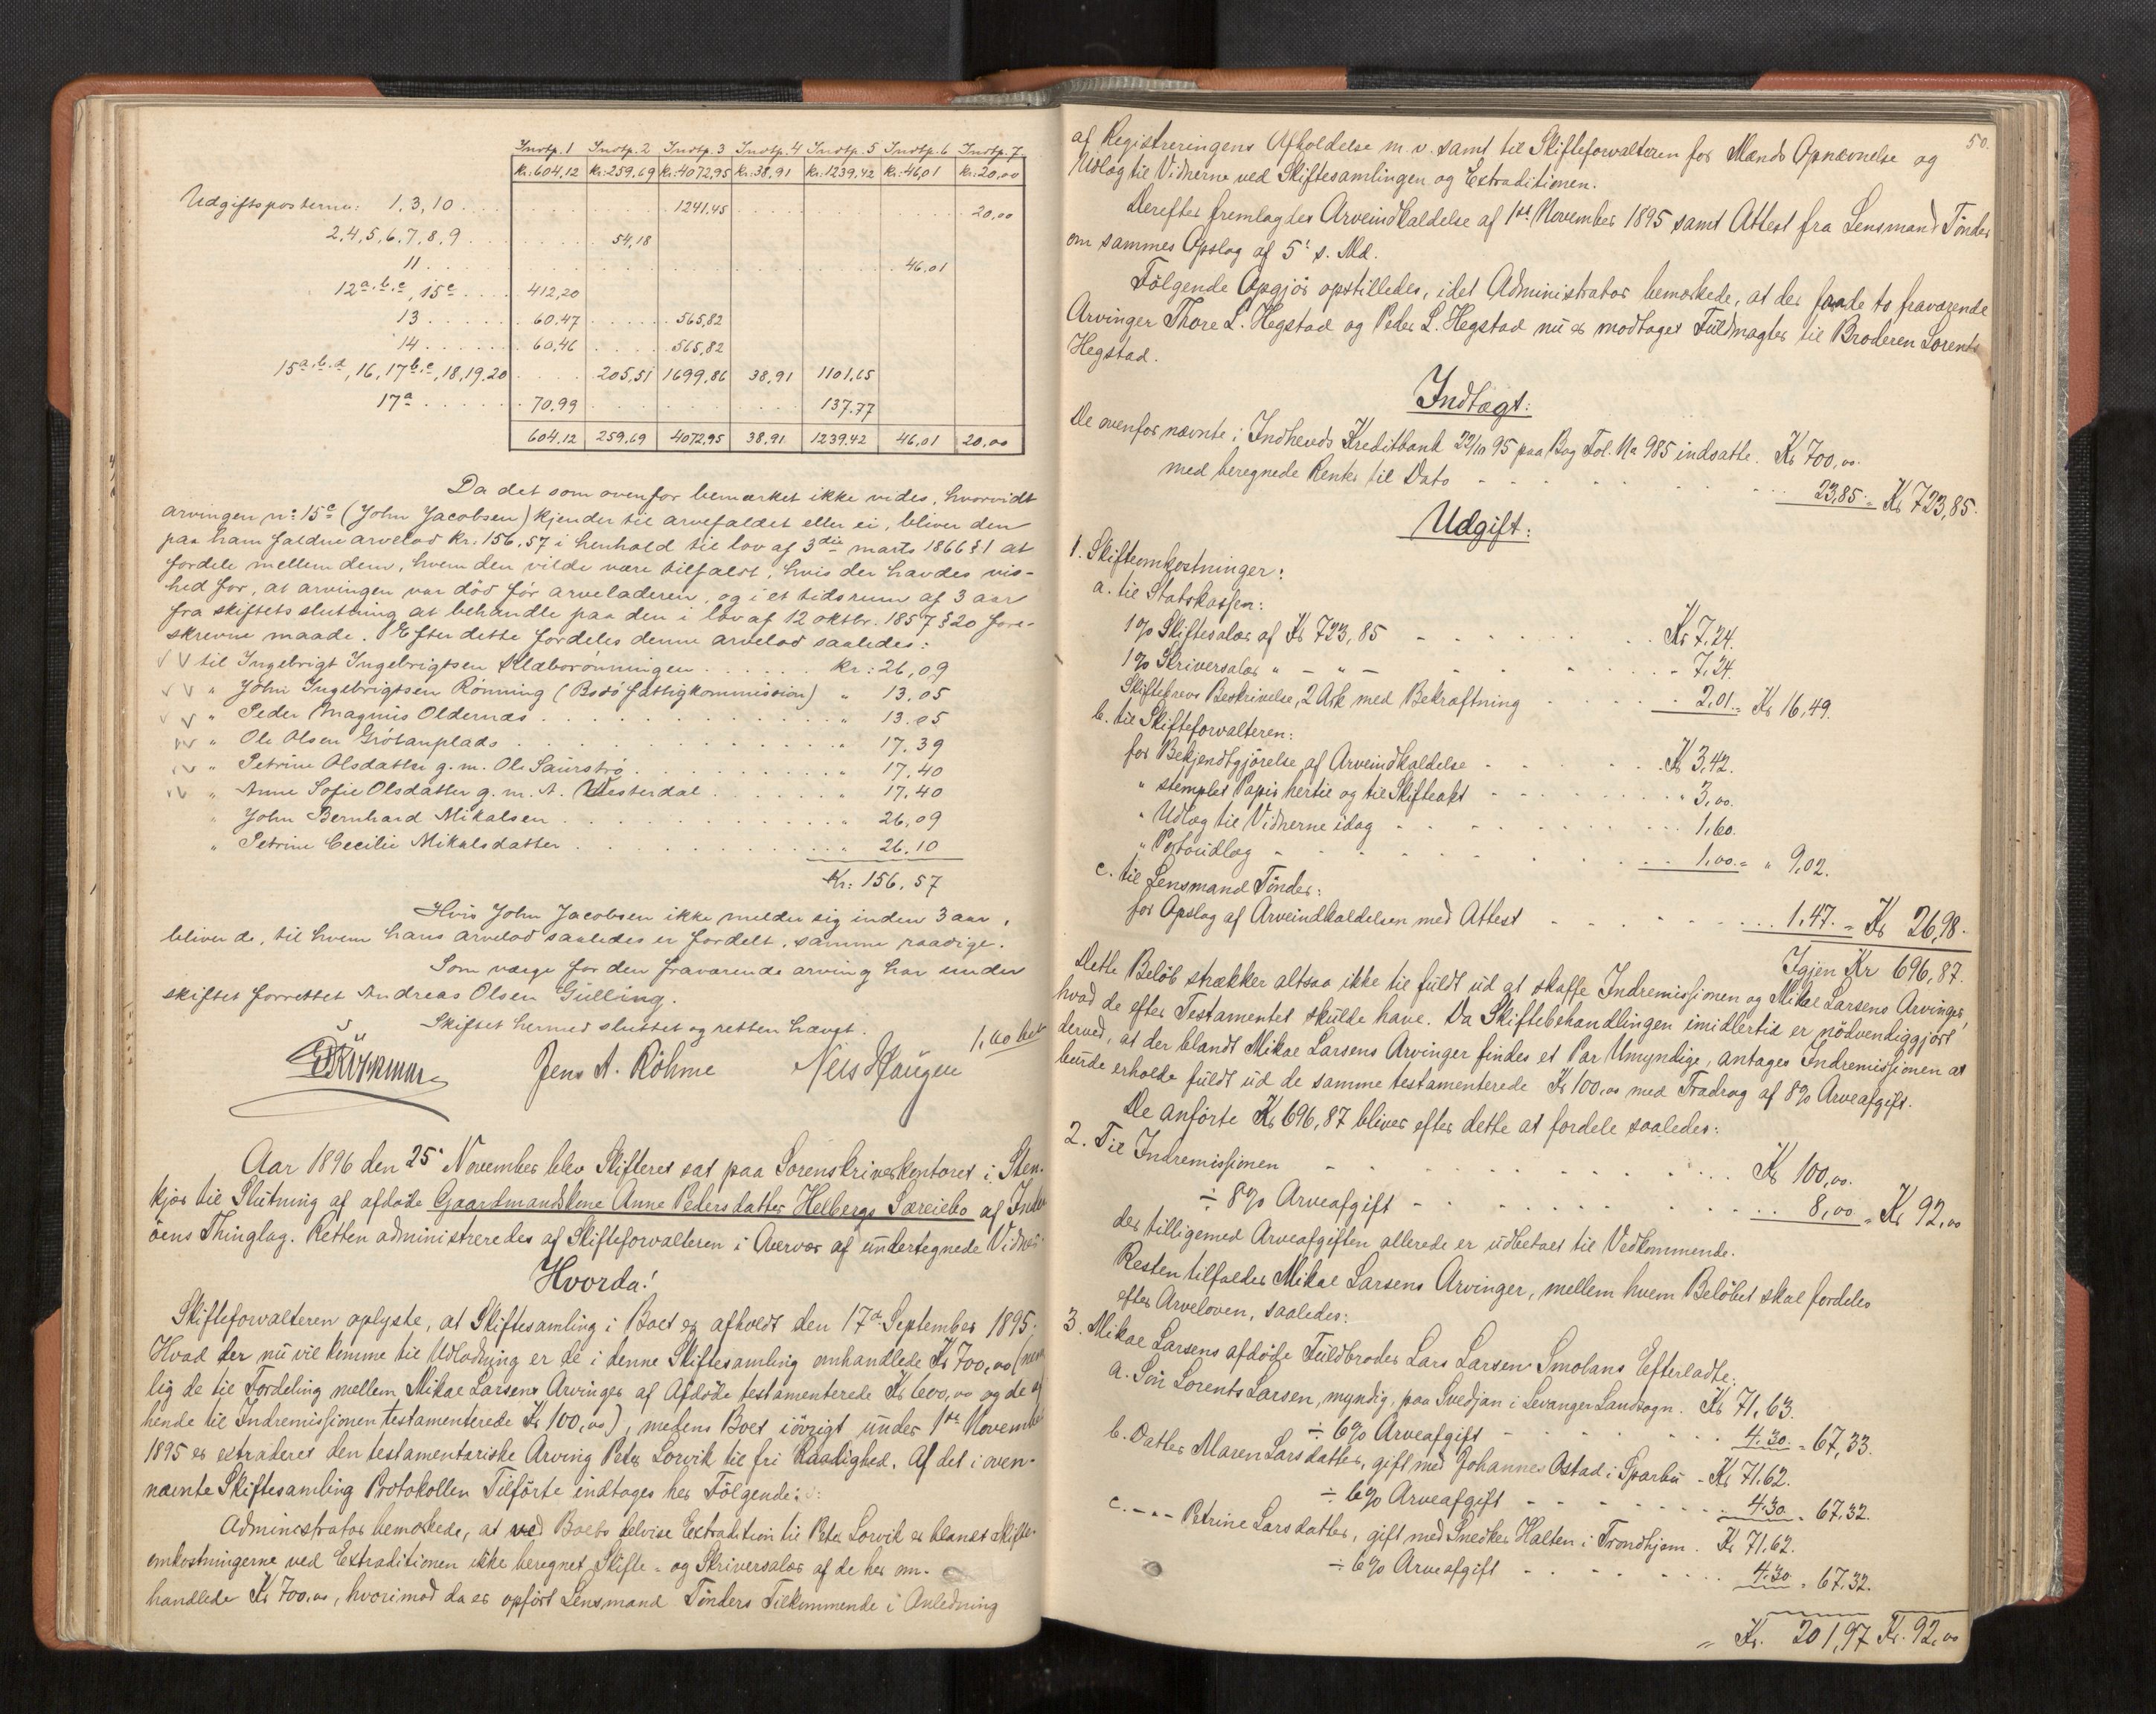 Indtp. 1 Indtp. 2 Indtp. 3 Indtp. 4 Indtp. 5 Indtp. 6 Indtp. 7
kr: 604,12 kr: 259,69 kr: 4072,95 kr: 38,91 kr: 1239,42 kr: 46,01 kr: 20,00
Udgiftsposterne: 1, 3, 10 . . . 1241.45 . . . 20,00
2, 4, 5, 6, 7, 8, 9 . . . 54,18
11 . . . 46,01
12a, b, c, 15c . . . 412,20
13 . . . 60.47 . . . 565,82
14 . . . 60,46 . . . 565,82
15a, b, d, 16, 17b, c, 18, 19, 20 . . . 205,51 1699,86 38,91 1101,65
17a . . . 70,99 . . . 137.77
604,12 259,69 4072,95 38,91 1239,42 46,01 20,00
Da det som ovenfor bemærket ikke vides, hvorvidt
arvingen no 15c (John Jacobsen) kjender til arvefaldet eller ei, bliver den
paa ham faldne arvelod kr. 156,57 i henhold til lov af 3die marts 1866 § 1 at
fordele mellem dem, hvem den vilde være tilfaldt, hvis der havdes vis-
hed for, at arvingen var död för arveladeren, og i et tidsrum af 3 aar
fra skiftets slutning at behandle paa den i lov af 12 oktbr. 1857 § 20 fore-
skrevne maade. Efter dette fordeles denne arvelod saaledes:
til Ingebrigt Ingebrigtsen Klæbrönningen . . . kr.: 26,09
" John Ingebrigtsen Rönning (Bodö fattigkommission) " 13.05
" Peder Magnus Oldernæs . . . " 13.05
" Ole Olsen Grötanplads . . . " 17.39
" Petrine Olsdatter g. m. Ole Saurströ . . . " 17.40
" Anne Sofie Olsdatter g. m. A. Vesterdal . . . " 17.40
" John Bernhard Mikalsen . . . " 26,09
" Petrine Cecilie Mikalsdatter . . . " 26.10
Kr: 156.57
Hvis John Jacobsen ikke melder sig inden 3 aar,
bliver de, til hvem hans arvelod saaledes er fordelt, samme raadige.
Som værge for den fraværende arving har under
skiftet forrettet Andreas Olsen Gulling.
Skiftet hermed sluttet og retten hævet.
1,60 bet
Jens A. Röhme Nels Haugen
Aar 1896 den 25' November blev Skifteret sat paa Sorenskriverkontoret i Sten-
kjær til Slutning af afdöde Gaardmandskone Anne Pedersdatter Helbergs Særeiebo af Inder
öens Thinglag. Retten administreredes af Skifteforvalteren i Overvær af undertegnede Vidner
Hvorda!
Skifteforvalteren oplyste, at Skiftesamling i Boet er afholdt den 17de September 1895.
Hvad der nu vil komme til Udlodning er de i denne Skiftesamling omhandlede Kr 700,00 (nem
lig de til Fordeling mellem Mikal Larsens Arvinger af Afdöde testamenterede Kr 600,00 og de af
hende til Indremissionen testamenterede Kr 100,00), medens Boet iövrigt under 1ste November
1895 er extraderet den testamentariske Arving Peter Lorvik til fri Raadighed. Af det i oven-
nævnte Skiftesamling Protokollen Tilförte indtages her Fölgende:
Administrator bemærkede, at ved Boets delvise Extradition til Peter Lorvik er blandt Skifte-
omkostningerne ved Extraditionen ikke beregnet Skifte- og Skriversalær af de her om-
handlede Kr 700,00, hvorimod da er opfört Lensmand Tönders Tilkommende i Anledning
50.
af Registreringens Afholdelse m. v. samt til Skifteforvalteren for Mænds Opnævnelse og
Udlæg til Vidnerne ved Skiftesamlingen og Extraditionen.
Derefter fremlagdes Arveindkaldelse af 1ste November 1895 samt Attest fra Lensmand Tönder
om sammes Opslag af 5' s. Md.
Fölgende Opgjör opstilledes, idet Administrator bemærkede, at der fra de to fraværende
Arvinger Thore L. Hegstad og Peder L. Hegstad nu er modtaget Fuldmagter til Broderen Lorents
Hegstad.
Indtægt:
De ovenfor nævnte i Indherreds Kreditbank 22/10 95 paa Bog Fol. No 985 indsatte. Kr 700,00.
med beregnede Renter til Dato . . . 23,85 = Kr 723,85.
Udgift:
1. Skifteomkostninger:
a. til Statskassen:
1 % Skiftesalær af Kr 723,85 . . . Kr 7,24.
1 % Skriversalær " - " - . . . - 7,24.
Skiftebrevs Beskrivelse, 2 Ark med Bekræftning . . . 2,01 = Kr 16,49.
b. til Skifteforvalteren:
for Bekjendtgjörelse af Arveindkaldelse . . . Kr 3,42.
" stemplet Papir hertil og til Skifteakt . . . " 3,00.
" Udlæg til Vidnerne idag . . . 1,60.
" Portoudlæg . . . 1,00 = " 9,02.
c. til Lensmand Tönder:
for Opslag af Arveindkaldelsen med Attest . . . 1,47. = Kr 26,98.
Igjen Kr 696,87.
Dette Belöb strækker altsaa ikke til fuldt ud at skaffe Indremissionen og Mikal Larsens Arvinger,
hvad de efter Testamentet skulde have. Da Skiftebehandlingen imidlertid er nödvendiggjort
derved, at der blandt Mikal Larsens Arvinger findes et Par Umyndige, antages Indremissionen at
burde erholde fuldt ud de samme testamenterede Kr 100,00 med Fradrag af 8 % Arveafgift.
De anförte Kr 696,87 bliver efter dette at fordele saaledes:
2. Til Indremissionen . . . Kr 100,00.
÷ 8 % Arveafgift . . . 8,00 = Kr 92,00
der tilligemed Arveafgiften allerede er udbetalt til Vedkommende.
Resten tilfalder Mikal Larsens Arvinger, mellem hvem Belöbet skal fordeles
efter Arveloven, saaledes:
3. Mikal Larsens afdöde Fuldbroder Lars Larsen Smolans Efterladte:
a. Sön Lorents Larsen, myndig, paa Svedjan i Levanger Landsogn. Kr 71,63.
÷ 6 % Arveafgift . . . 4.30 = 67,33.
b. Datter Maren Larsdatter, gift med Johannes Ostad i Sparbu - Kr 71,62.
÷ 6 % Arveafgift . . . 4.30 = 67,32.
c. - " - Petrine Larsdatter, gift med Snedker Halten i Trondhjem. Kr 71,62.
÷ 6 % Arveafgift . . . 4.30 = 67,32.
Kr. 201,97 Kr. 92,00